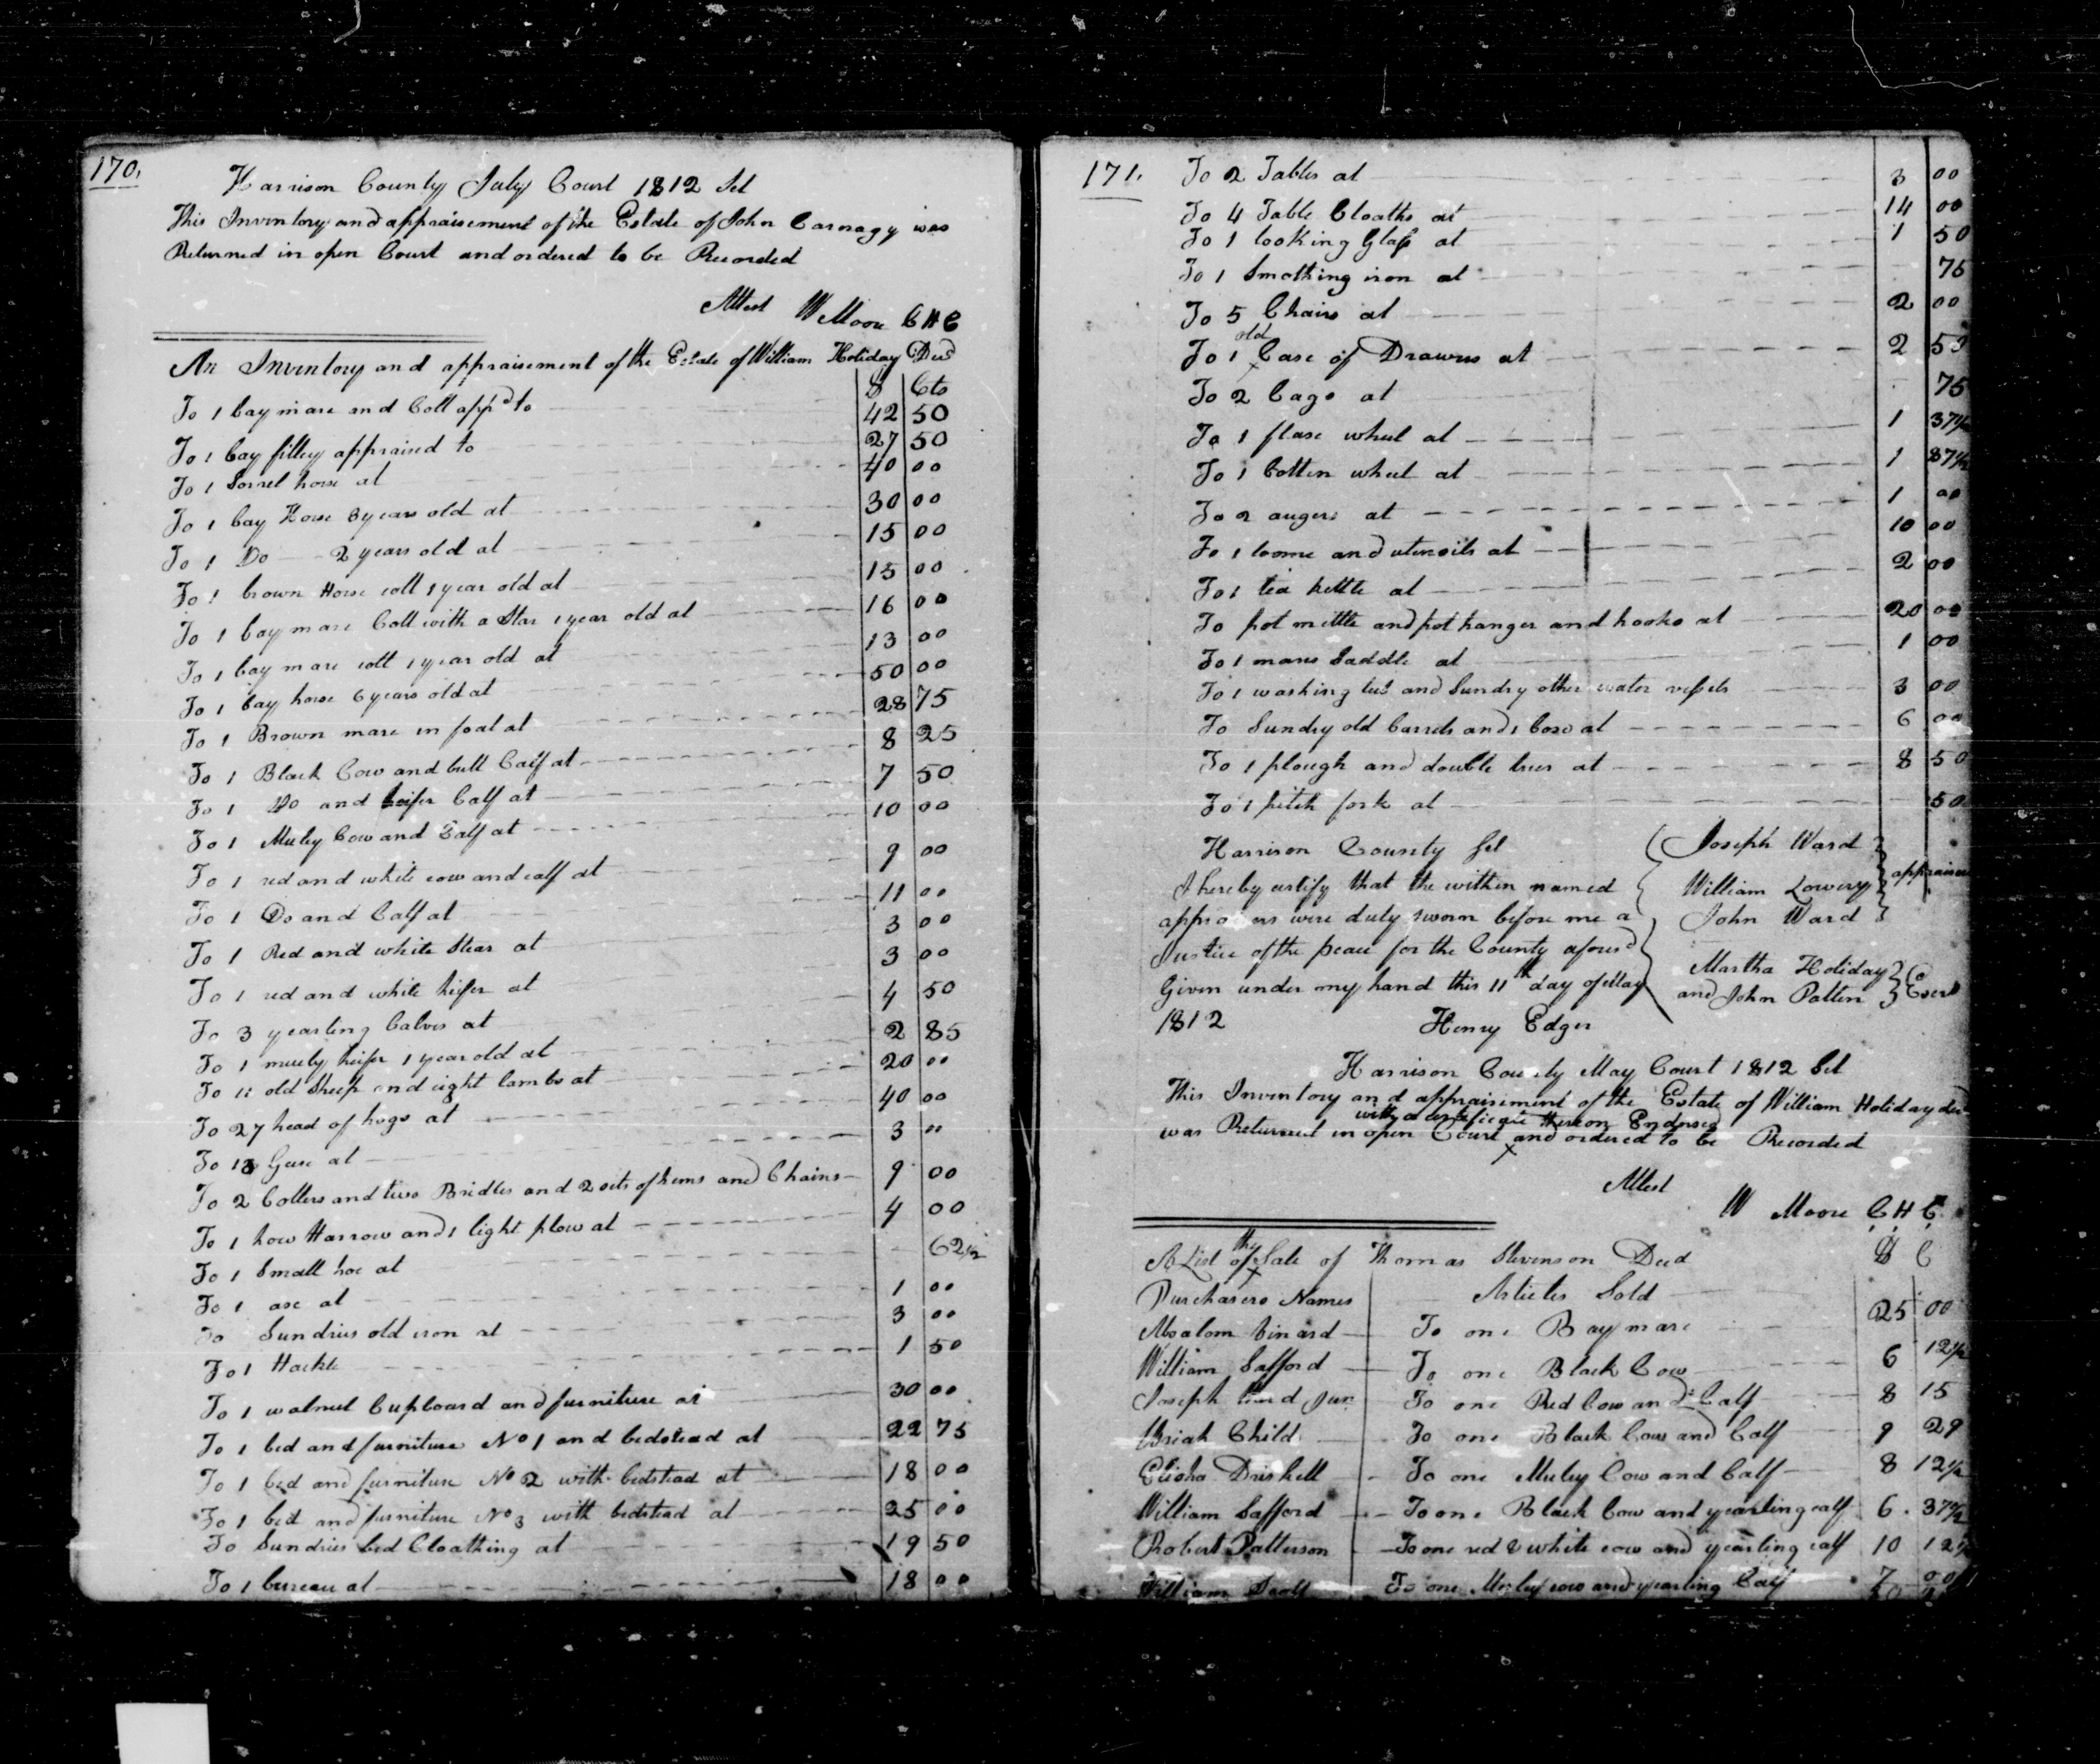 170.
Harrison County July Court 1812 Sct
This Inventory and appraisement of the Estate of John Carnagy was
Returned in open Court and ordered to be Recorded
Attest W Moore C H C
An Inventory and appraisement of the Estate of William Holiday Decd
D Cts
To 1 bay mare and Colt appd to 42 50
To 1 bay filley appraised to 27 50
To 1 Sorrel horse at 40 00
To 1 bay Horse 3 years old at 30 00
To 1 Do 2 years old at 15 00
To 1 brown Horse colt 1 year old at 15 00
To 1 bay mare Colt with a Star 1 year old at 16 00
To 1 bay mare colt 1 year old at 13 00
To 1 bay horse 6 years old at 50 00
To 1 Brown mare in foal at 28 75
To 1 Black Cow and bull Calf at 8 25
To 1 Do and heifer Calf at 7 50
To 1 Muley Cow and Calf at 10 00
To 1 red and white cow and calf at 9 00
To 1 Do and Calf at 11 00
To 1 Red and white Stear at 3 00
To 1 red and white heifer at 3 00
To 3 yearling Calves at 4 50
To 1 muely heifer 1 year old at 2 85
To 11 old Sheep and eight lambs at 20 00
To 27 head of hogs at 40 00
To 13 Geese at 3 "
To 2 Collers and two Bridles and 2 sets of hems and Chains 9 00
To 1 how Harrow and 1 light plow at 4 00
To 1 Small hoe at 62 1/2
To 1 axe at 1 00
To Sundries old iron at 3 00
To 1 Hackle 1 50
To 1 walnut Cupboard and furniture at 30 00
To 1 bed and furniture No 1 and bedstead at 22 75
To 1 bed and furniture No 2 with bedstead at 18 00
To 1 bed and furniture No 3 with bedstead at 25 00
To Sundries bed Cloathing at 19 50
To 1 bureau at 18 00
171.
To 2 Tables at 3 00
To 4 Table Cloaths at 14 00
To 1 looking Glass at 1 50
To 1 Smothing iron at 75
To 5 Chairs at 2 00
To 1 old Case of Drawers at 2 50
To 2 Cags at 75
To 1 flaxe wheel at 1 37 1/2
To 1 Cotten wheel at 1 87 1/2
To 2 augers at 1 00
To 1 loome and utensils at 10 00
To 1 tea kettle at 2 00
To pot mittle and pot hanger and hooks at 20 00
To 1 mans Saddle at 1 00
To 1 washing tub and Sundry other water vessels 3 00
To Sundry old barrels and 1 boxe at 6 00
To 1 plough and double trees at 8 50
To 1 pitch fork at 50
Harrison County Sct
I hereby certify that the within named
appraisers were duly sworn before me a
Justice of the peace for the County aforesd
Given under my hand this 11th day of May
1812 Henry Edger
Joseph Ward
William Lowery
John Ward
appraisers
Martha Holiday
and John Patten
Harrison County May Court 1812 Sct
This Inventory and appraisement of the Estate of William Holiday decd
was Returned in open Court with a certificate thereon Endorsed and ordered to be Recorded
Attest
W Moore C H C
A List of the Sale of Thomas Stevenson Decd D C
Purchasers Names Articles Sold
To one Bay mare 25 00
William Safford To one Black Cow 6 12 1/2
Joseph Jun To one Red Cow and Calf 8 15
Uriah Child To one Black Cow and Calf 9 29
Elisha Driskell To one Muley Cow and Calf 8 12 1/2
William Safford To one Black Cow and yearling calf 6 37 1/2
Robert Patterson To one red & white cow and yearling calf 10 12 1/2
William To one Muley cow and yearling Calf 7 00